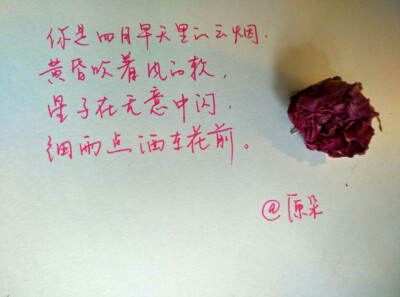 你是四月早天里的云烟，
黄昏吹着风的软，
星子在无意中闪，
细雨点洒在花前。
@原朵